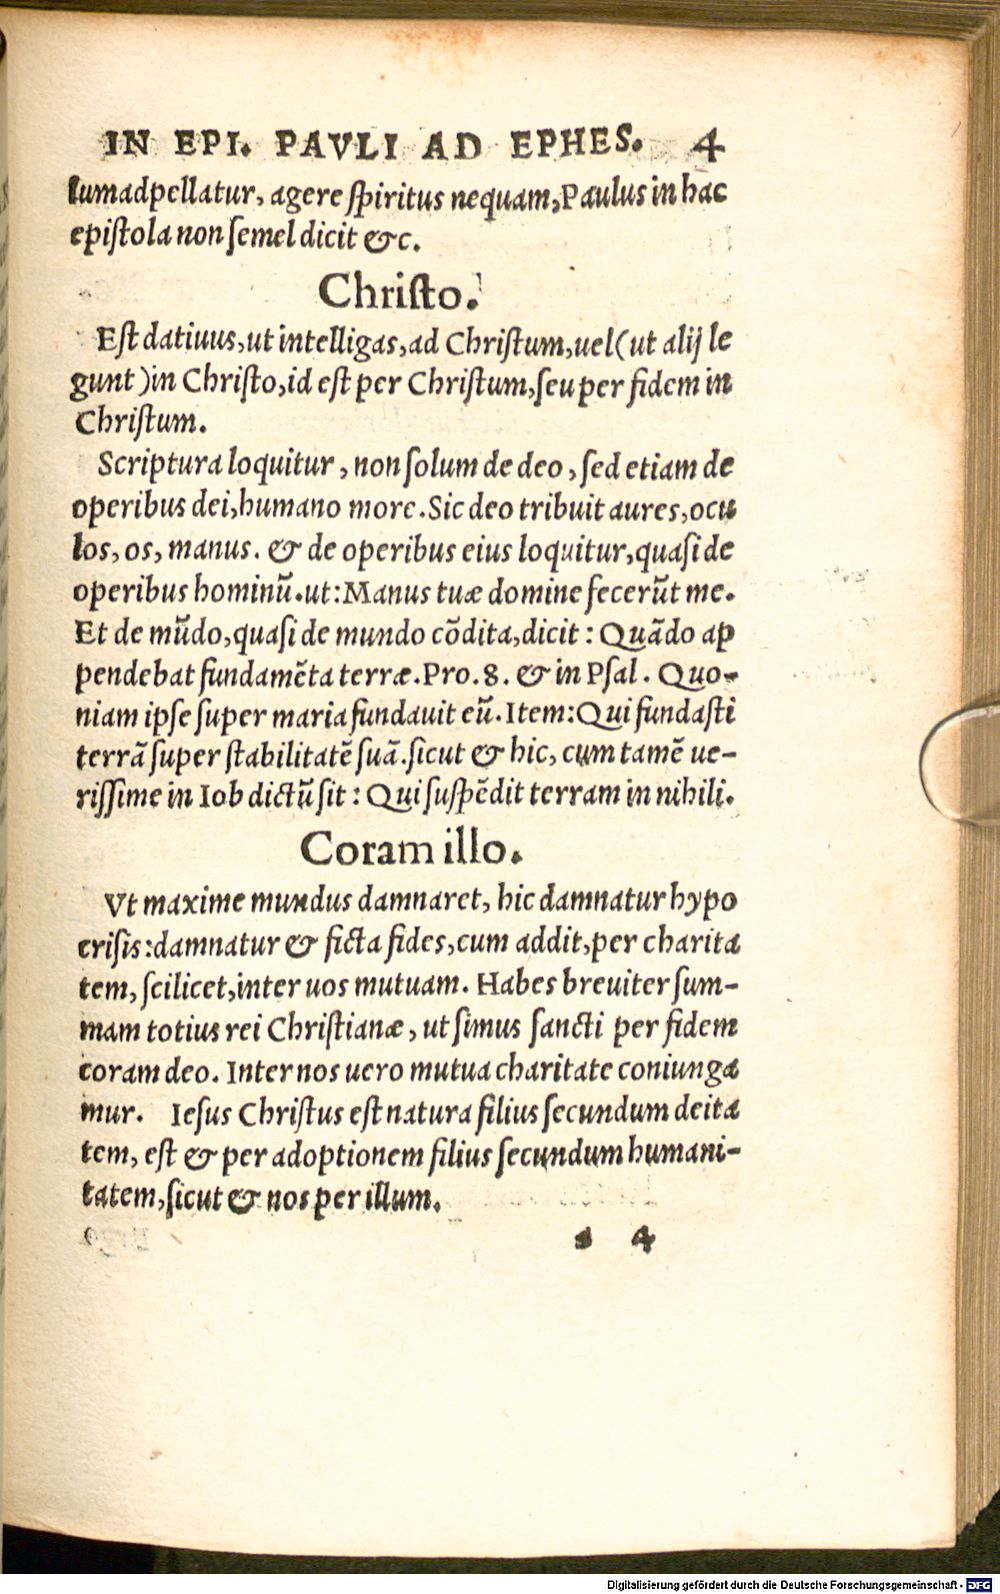 IN EPI. PAVLI AD EPHES. 4
lumadpellatur, agere ſpiritus nequam, Paulus in hac
epiſtola non ſemel dicit &c.
Chriſto.
Eſt datiuus, ut intelligas, ad Chriſtum, uel (ut alij le
gunt) in Chriſto, id eſt per Chriſtum, ſeu per fidem in
Chriſtum.
Scriptura loquitur, non ſolum de deo, ſed etiam de
operibus dei, humano more. Sic deo tribuit aures, ocu
los, os, manus. & de operibus eius loquitur, quaſi de
operibus hominū. ut: Manus tuæ domine fecerūt me.
Et de mūdo, quaſi de mundo cōdita, dicit: Quādo ap
pendebat fundamēta terræ. Pro. 8. & in Pſal. Quo-
niam ipſe ſuper maria fundauit eū. Item: Qui fundaſti
terrā ſuper ſtabilitatē ſuā. ſicut & hic, cum tamē ue-
riſſime in Iob dictū ſit: Qui ſuſpēdit terram in nihili.
Coram illo.
Vt maxime mundus damnaret, hic damnatur hypo
criſis: damnatur & ficta fides, cum addit, per charita
tem, ſcilicet, inter uos mutuam. Habes breuiter ſum-
mam totius rei Chriſtianæ, ut ſimus ſancti per fidem
coram deo. Inter nos uero mutua charitate coniunga
mur. Ieſus Chriſtus eſt natura filius ſecundum deita
tem, eſt & per adoptionem filius ſecundum humani-
tatem, ſicut & nos per illum.
a 4
Digitalisierung gefördert durch die Deutsche Forschungsgemeinschaft - DFG